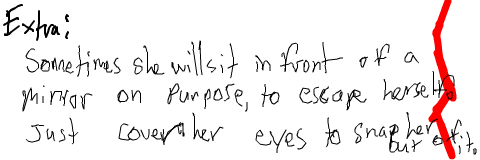 Extra:
Sometimes she will sit in front of a
mirror on purpose, to escape herself.
Just cover her eyes to snap her
out of it.